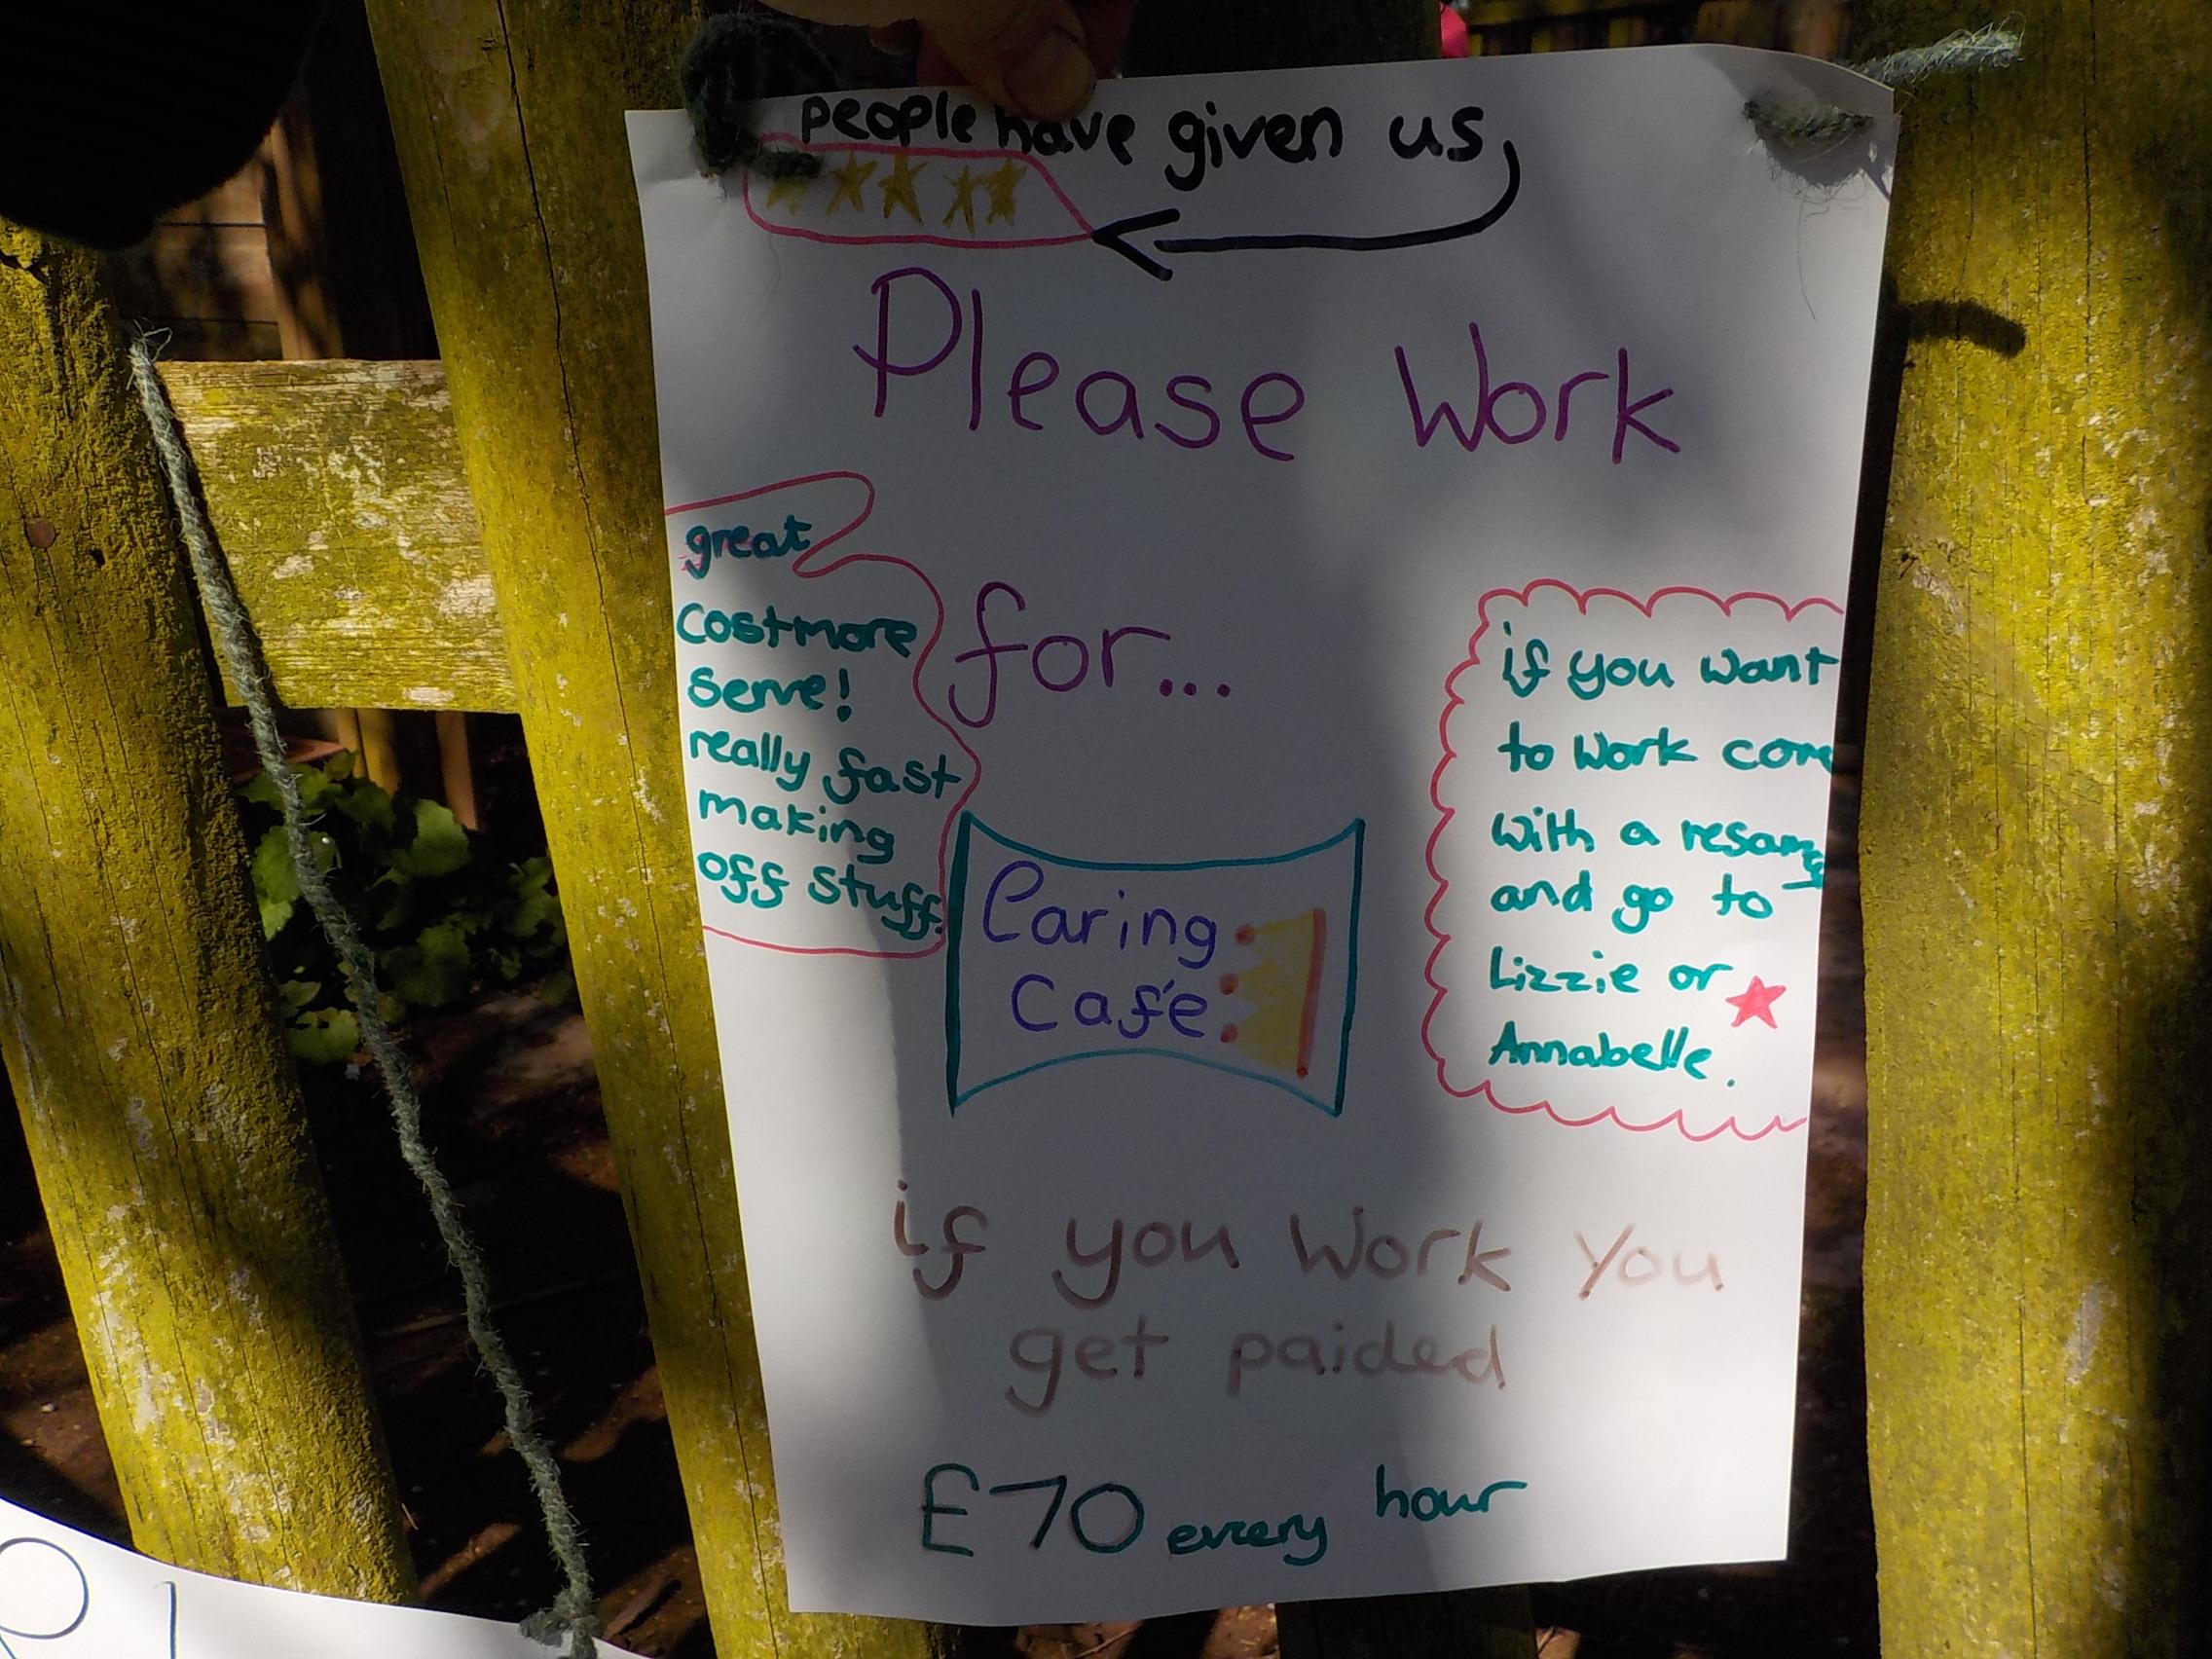 people have given us
Please Work
great
Costmore
Serve!
really fast
making
off stuff.
for...
if you want
to work come
with a resame
and go to
Lizzie or
Annabelle.
Caring
Café
if you work you
get paided
£70 every hour